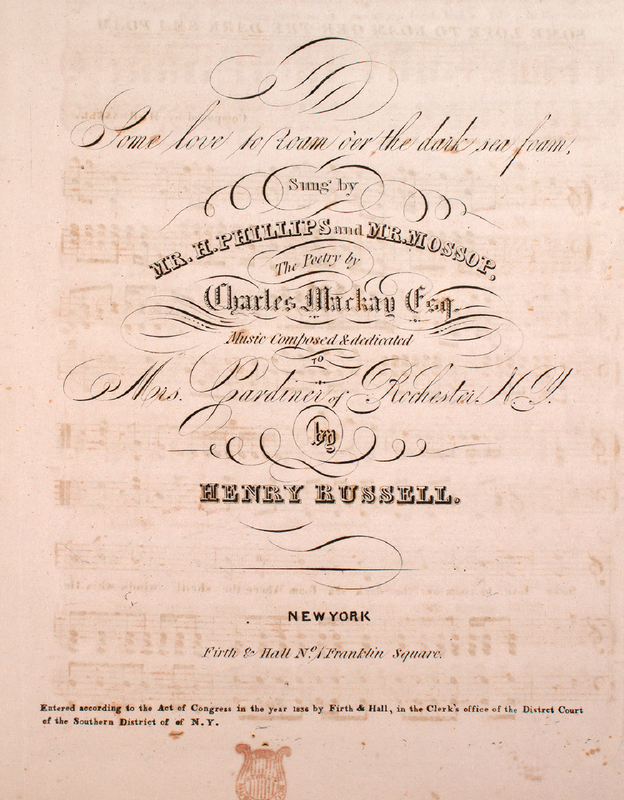 Some love to Roam o'er the dark sea foam,
Sung by
MR. H. PHILLIPS and MR. MOSSOP,
The Poetry by
Charles Mackay Esq.
Music Composed & dedicated
TO
Mrs. Gardiner of Rochester N.Y.
by
HENRY RUSSELL.
NEW YORK
Firth & Hall No. 1 Franklin Square.
Entered according to the Act of Congress in the year 1836 by Firth & Hall, in the Clerk's office of the Distrct Court
of the Southern District of of N.Y.